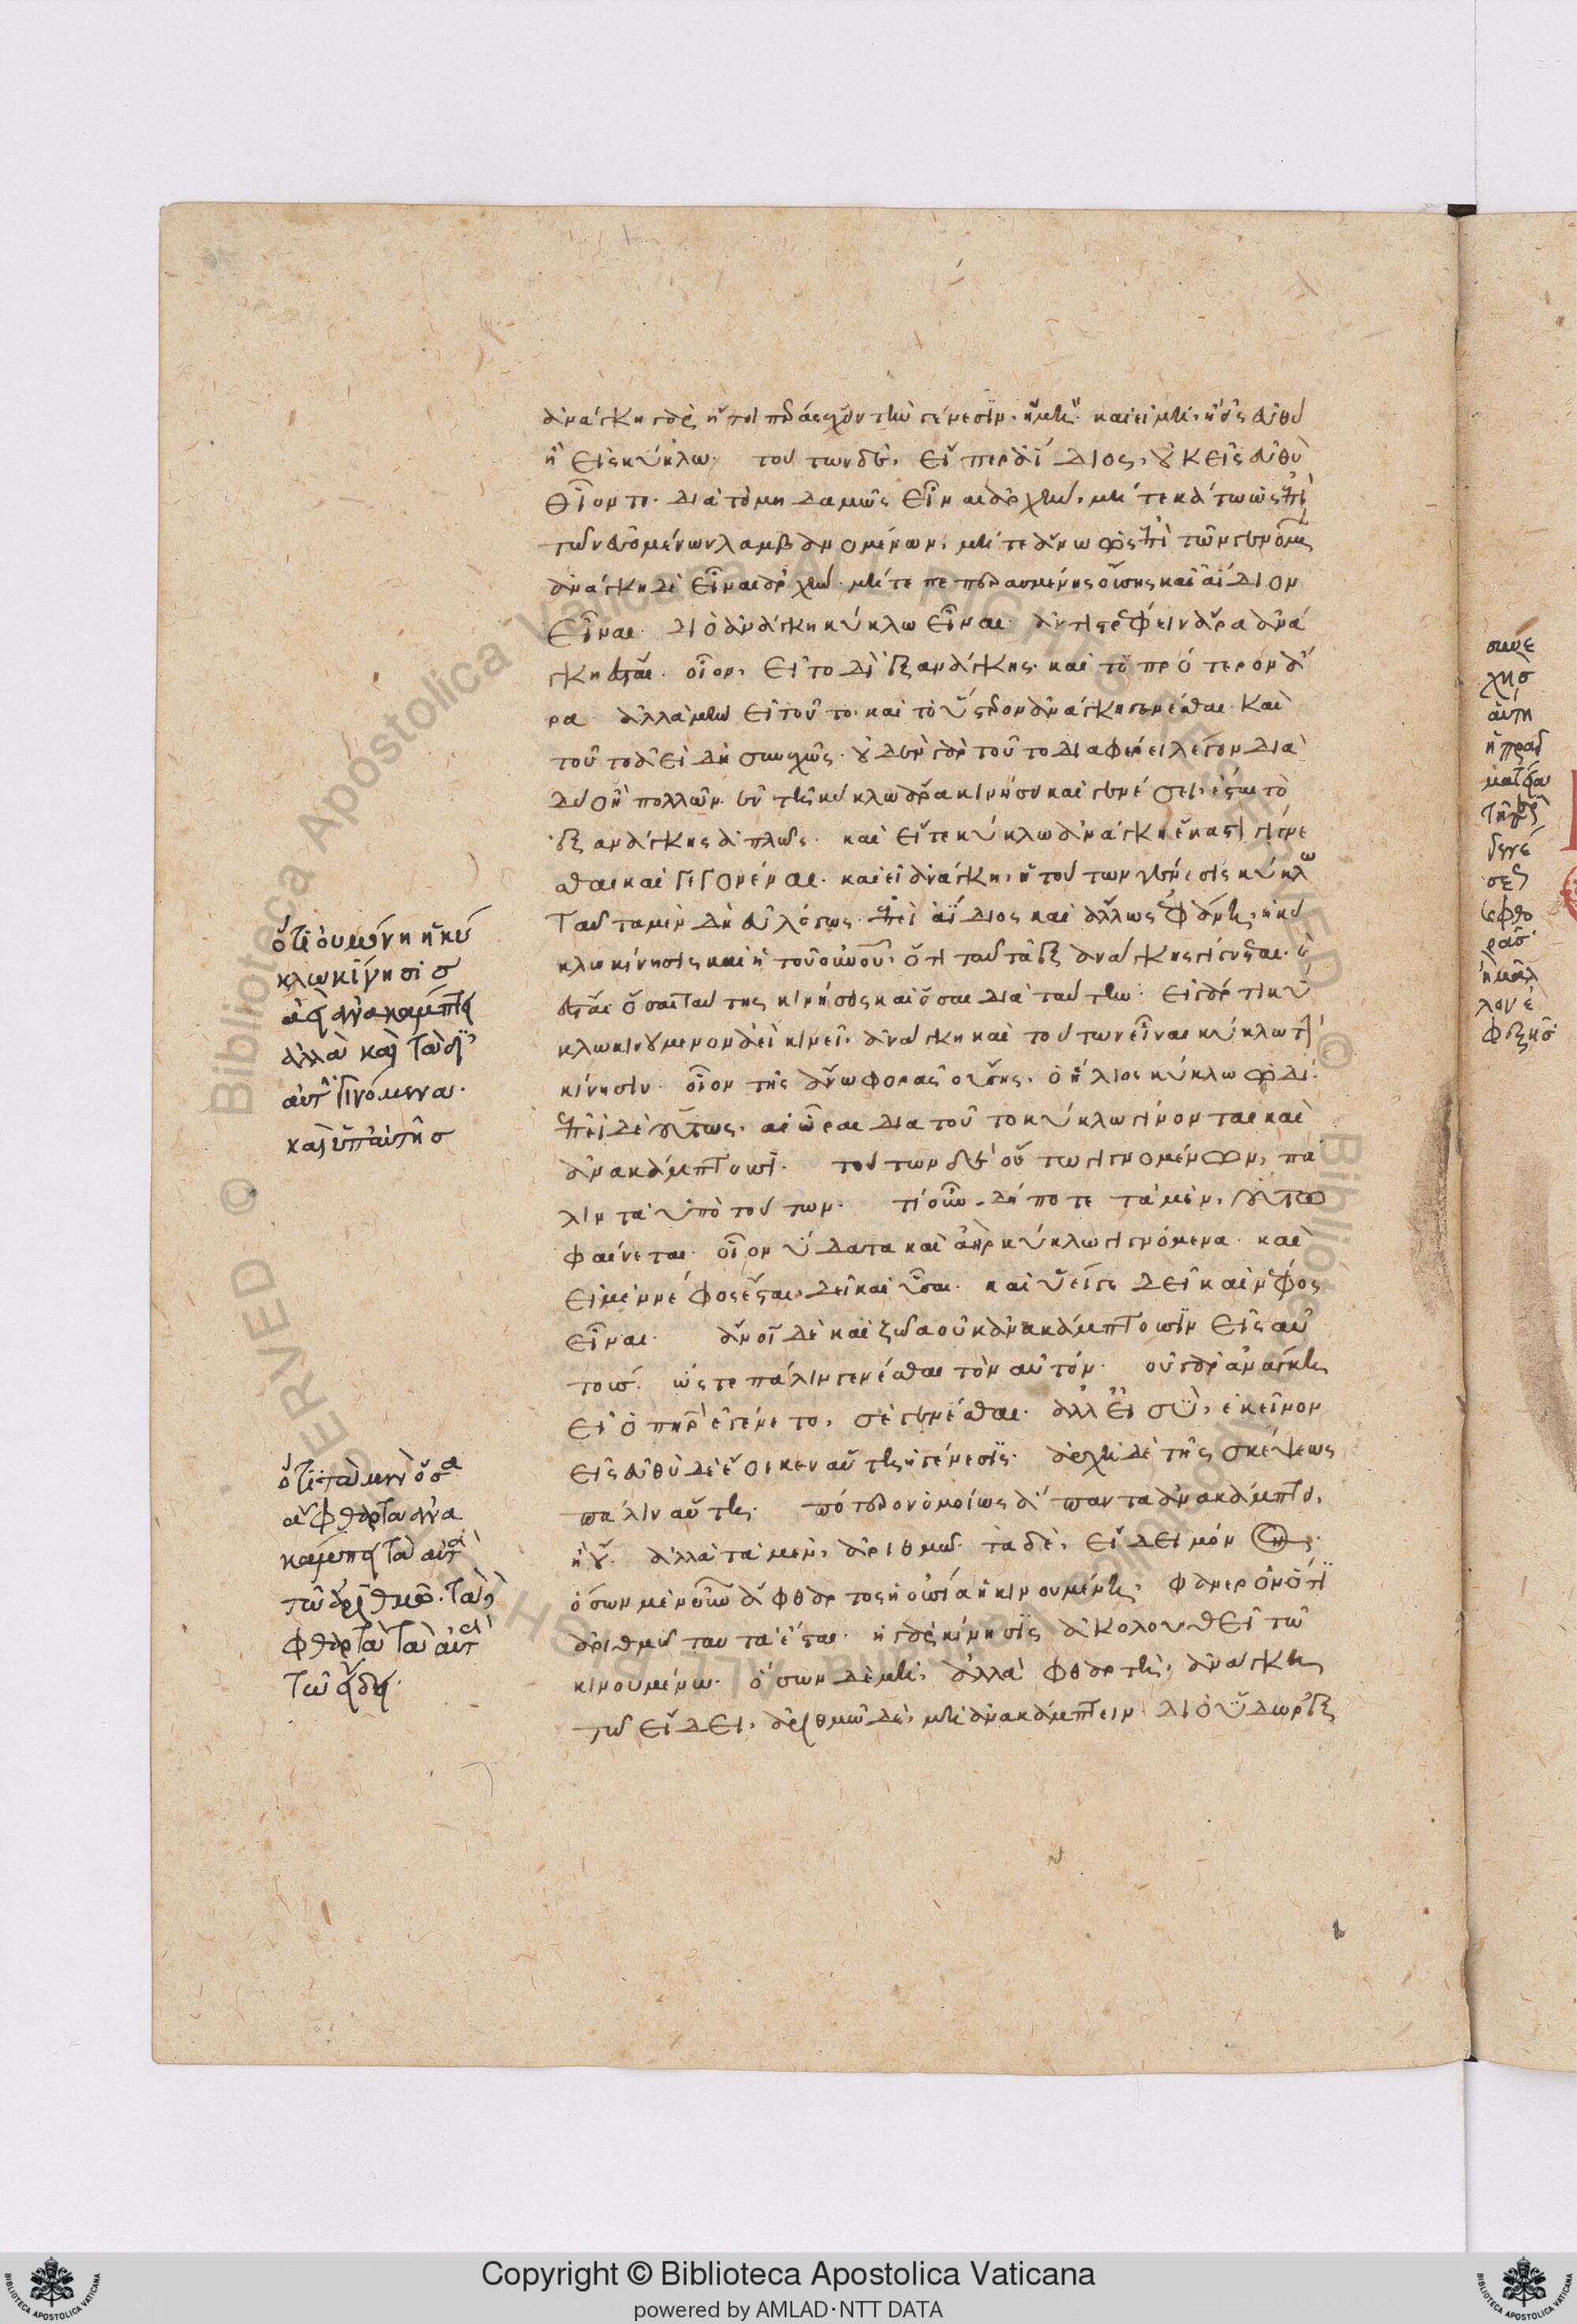 ἀνάγκη γὰρ ἤτοι πέρας ἔχειν τὴν γένεσιν. ἢ μή. καὶ εἰ μὴ, ἢ εἰς εὐθὺ
ἢ εἰς κύκλω. τούτων δὲ, εἴπερ ἀΐδιος, οὐκ εἰς εὐθὺ
οἷόν τε. διὰ τὸ μηδαμῶς εἶναι ἀρχήν, μήτε κάτω ὡς ἐπὶ
τῶν ἐσομένων λαμβανομένων, μήτε ἄνω ὡς ἐπὶ τῶν γενομένων
ἀνάγκη δὲ εἶναι ἀρχήν. μήτε πεπερασμένης οὔσης καὶ ἀΐδιον
εἶναι. διὸ ἀνάγκη κύκλω εἶναι. ἀντιστρέφειν ἄρα ἀνά
γκη ἔσται. οἷον, εἰ τοδὶ ἐξ ἀνάγκης. καὶ τὸ πρότερον ἄ
ρα. ἀλλὰ μὴν εἰ τοῦτο. καὶ τὸ ὕστερον ἀνάγκη γενέσθαι. καὶ
τοῦτο ἀεὶ δὴ συνεχῶς. οὐδὲν γὰρ τοῦτο διαφέρει λέγειν διὰ
δύο ἢ πολλῶν. ἐν τῆ κύκλω ἄρα κινήσει καὶ γενέσει, ἐστὶ τὸ
ἐξ ἀνάγκης ἁπλῶς. καὶ εἴτε κύκλω ἀνάγκη ἕκαστον γίνε
σθαι καὶ γεγονέναι. καὶ εἰ ἀνάγκη, ἡ τούτων γένεσις κύκλω
ταῦτα μὲν δὴ εὐλόγως. ἐπεὶ ἀΐδιος καὶ ἄλλως ἐφάνη, ἡ κύ
κλω κίνησις καὶ ἡ τοῦ οὐρανοῦ. ὅτι ταῦτα ἐξ ἀνάγκης γίνεται. καὶ
ἔσται ὅσαι ταύτης κινήσεις καὶ ὅσαι διὰ ταύτην. εἰ γάρ τι κύ
κλω κινούμενον ἀεὶ κινεῖ. ἀνάγκη καὶ τούτων εἶναι κύκλω τὴν
κίνησιν. οἷον τῆς ἄνω φορᾶς οὔσης. ὁ ἥλιος κύκλω ὡδί.
ἐπεὶ δὲ οὕτως. αἱ ὧραι διὰ τοῦτο κύκλω γίνονται καὶ
ἀνακάμπτουσι. τούτων δ' οὕτω γινομένων, πά
λιν τὰ ὑπὸ τούτων. τί οὖν δή ποτε τὰ μὲν, οὕτω
φαίνεται. οἷον ὕδατα καὶ ἀὴρ κύκλω γινόμενα. καὶ
εἰ μὲν νέφος ἔσται, δεῖ καὶ ὗσαι. καὶ ὕσει γε δεῖ καὶ νέφος
εἶναι. ἄνοι δὲ καὶ ζῶα οὐκ ἀνακάμπτουσιν εἰς αὑ
τούς. ὥστε πάλιν γενέσθαι τὸν αὐτόν. οὐ γὰρ ἀνάγκη
εἰ ὁ πὴρ ἐγένετο, σὲ γενέσθαι. ἀλλ' εἰ σὺ, ἐκεῖνον
εἰς εὐθὺ δὲ ἔοικεν αὕτη ἡ γένεσις. ἀρχὴ δὲ τῆς σκέψεως
πάλιν αὕτη. πότερον ὁμοίως ἅπαντα ἀνακάμπτει,
ἢ οὔ. ἀλλὰ τὰ μὲν, ἀριθμῶ. τὰ δὲ, εἴδει μόνον.
ὅσων μὲν οὖν ἄφθαρτος ἡ οὐσία ἡ κινουμένη, φανερὸν ὅτι
ἀριθμῶ ταυτὰ ἔσται. ἡ γὰρ κίνησις ἀκολουθεῖ τῶ
κινουμένω. ὅσων δὲ μὴ, ἀλλὰ φθαρτὴ, ἀνάγκη
τῶ εἴδει, ἀριθμῶ δὲ, μὴ ἀνακάμπτειν. διὸ ὕδωρ ἐξ
ὅτι οὐ μόνη ἡ κύ
κλω κίνησις
ἀεὶ ἀνακάμπτει
ἀλλὰ καὶ τὰ δι'
αὐτ γινόμενα.
καὶ ὑπ' αὐτῆς
ὅτι τὰ μὲν ὅσα
ἄφθαρτα ἀνα
κάμπτει τὰ αὐτὰ
τῶ ἀριθμῶ. τὰ δὲ
φθαρτὰ τὰ αὐτὰ
τῶ εἴδει.